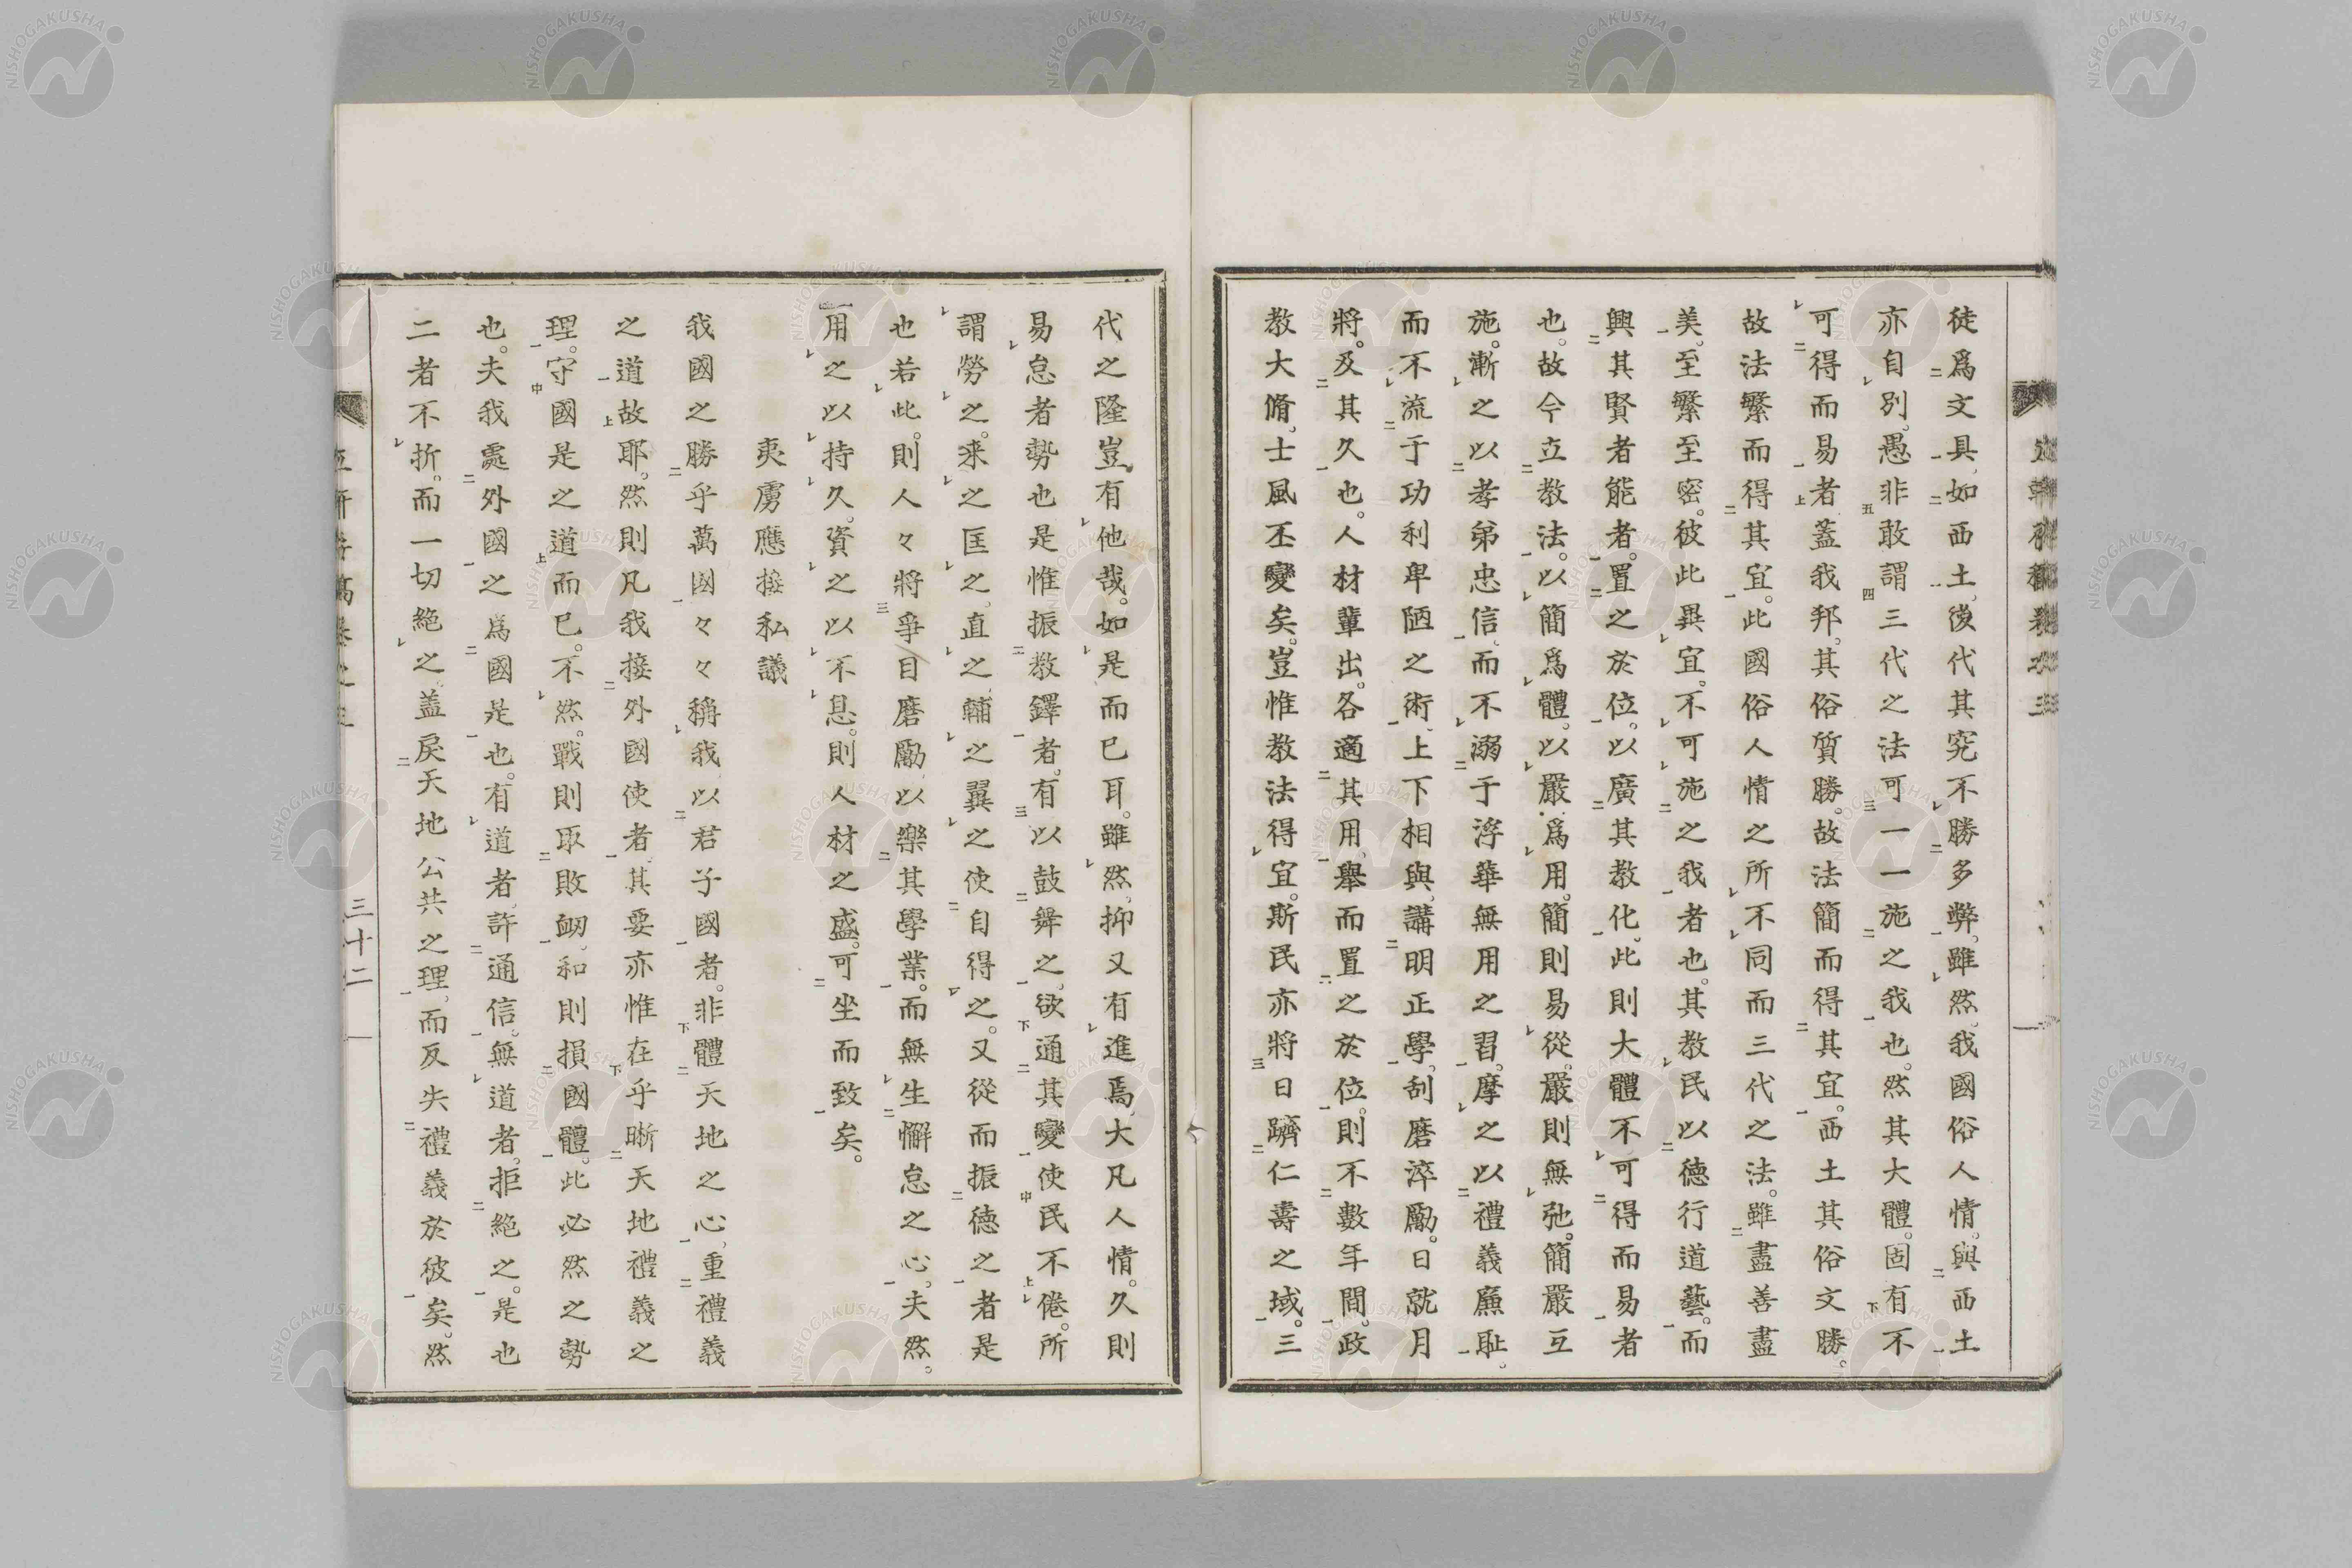 徒爲文具、如西土、後代其究不勝多弊、雖然、我國俗人情、與西土
亦自別、愚非敢謂三代之法可一一施之我也。然其大體。固有不
可得而易者蓋我邦、其俗質勝。故法簡而得其宜。西土其俗文勝。
故法繁而得其宜。此國俗人情之所不同而三代之法。雖盡善盡
美、至繁至密。彼此異宜。不可施之我者也。其教民以德行道藝。而
興其賢者能者。置之於位。以廣其教化。此則大體不可得而易者
也。故今立教法。以簡爲體。以嚴爲用。簡則易從。嚴則無弛。簡嚴互
施。漸之以孝弟忠信、而不溺于浮華無用之習。摩之以禮義廉耻。
而不流于功利卑陋之術、上下相與、講明正學、刮磨淬勵。日就月
將。及其久也。人材輩出。各適其用、舉而置之於位。則不數年間。政
教大脩。士風丕變矣。豈惟教法得宜。斯民亦將日躋仁壽之域。三
代之隆豈有他哉。如是而已耳。雖然、抑又有進焉、大凡人情。久則
易怠者勢也是惟振教鐸者。有以鼓舞之、欲通其變使民不倦。所
謂勞之。來之匡之、直之、輔之翼之使自得之。又從而振德之者是
也若此。則人々將爭自磨勵、以樂其學業。而無生懈怠之心。夫然。
用之以持久。資之以不息。則人材之盛。可坐而致矣。
夷虜應接私議
我國之勝乎萬國々々稱我以君子國者。非體天地之心、重禮義
之道故耶。然則凡我接外國使者、其要亦惟在乎晰天地禮義之
理。守國是之道而已。不然。戰則取敗衂、和則損國體。此必然之勢
也。夫我處外國之爲國是也。有道者、許通信。無道者、拒絕之。是也
二者不折。而一切絕之、蓋戾天地公共之理、而反失禮義於彼矣。然
三十二